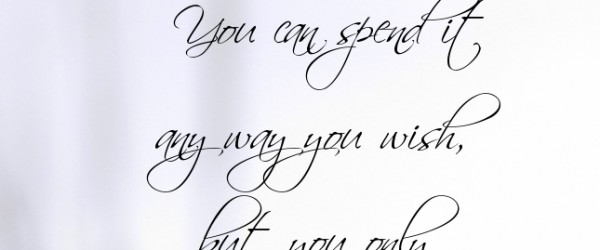 You can spend it
any way you wish,
but you only